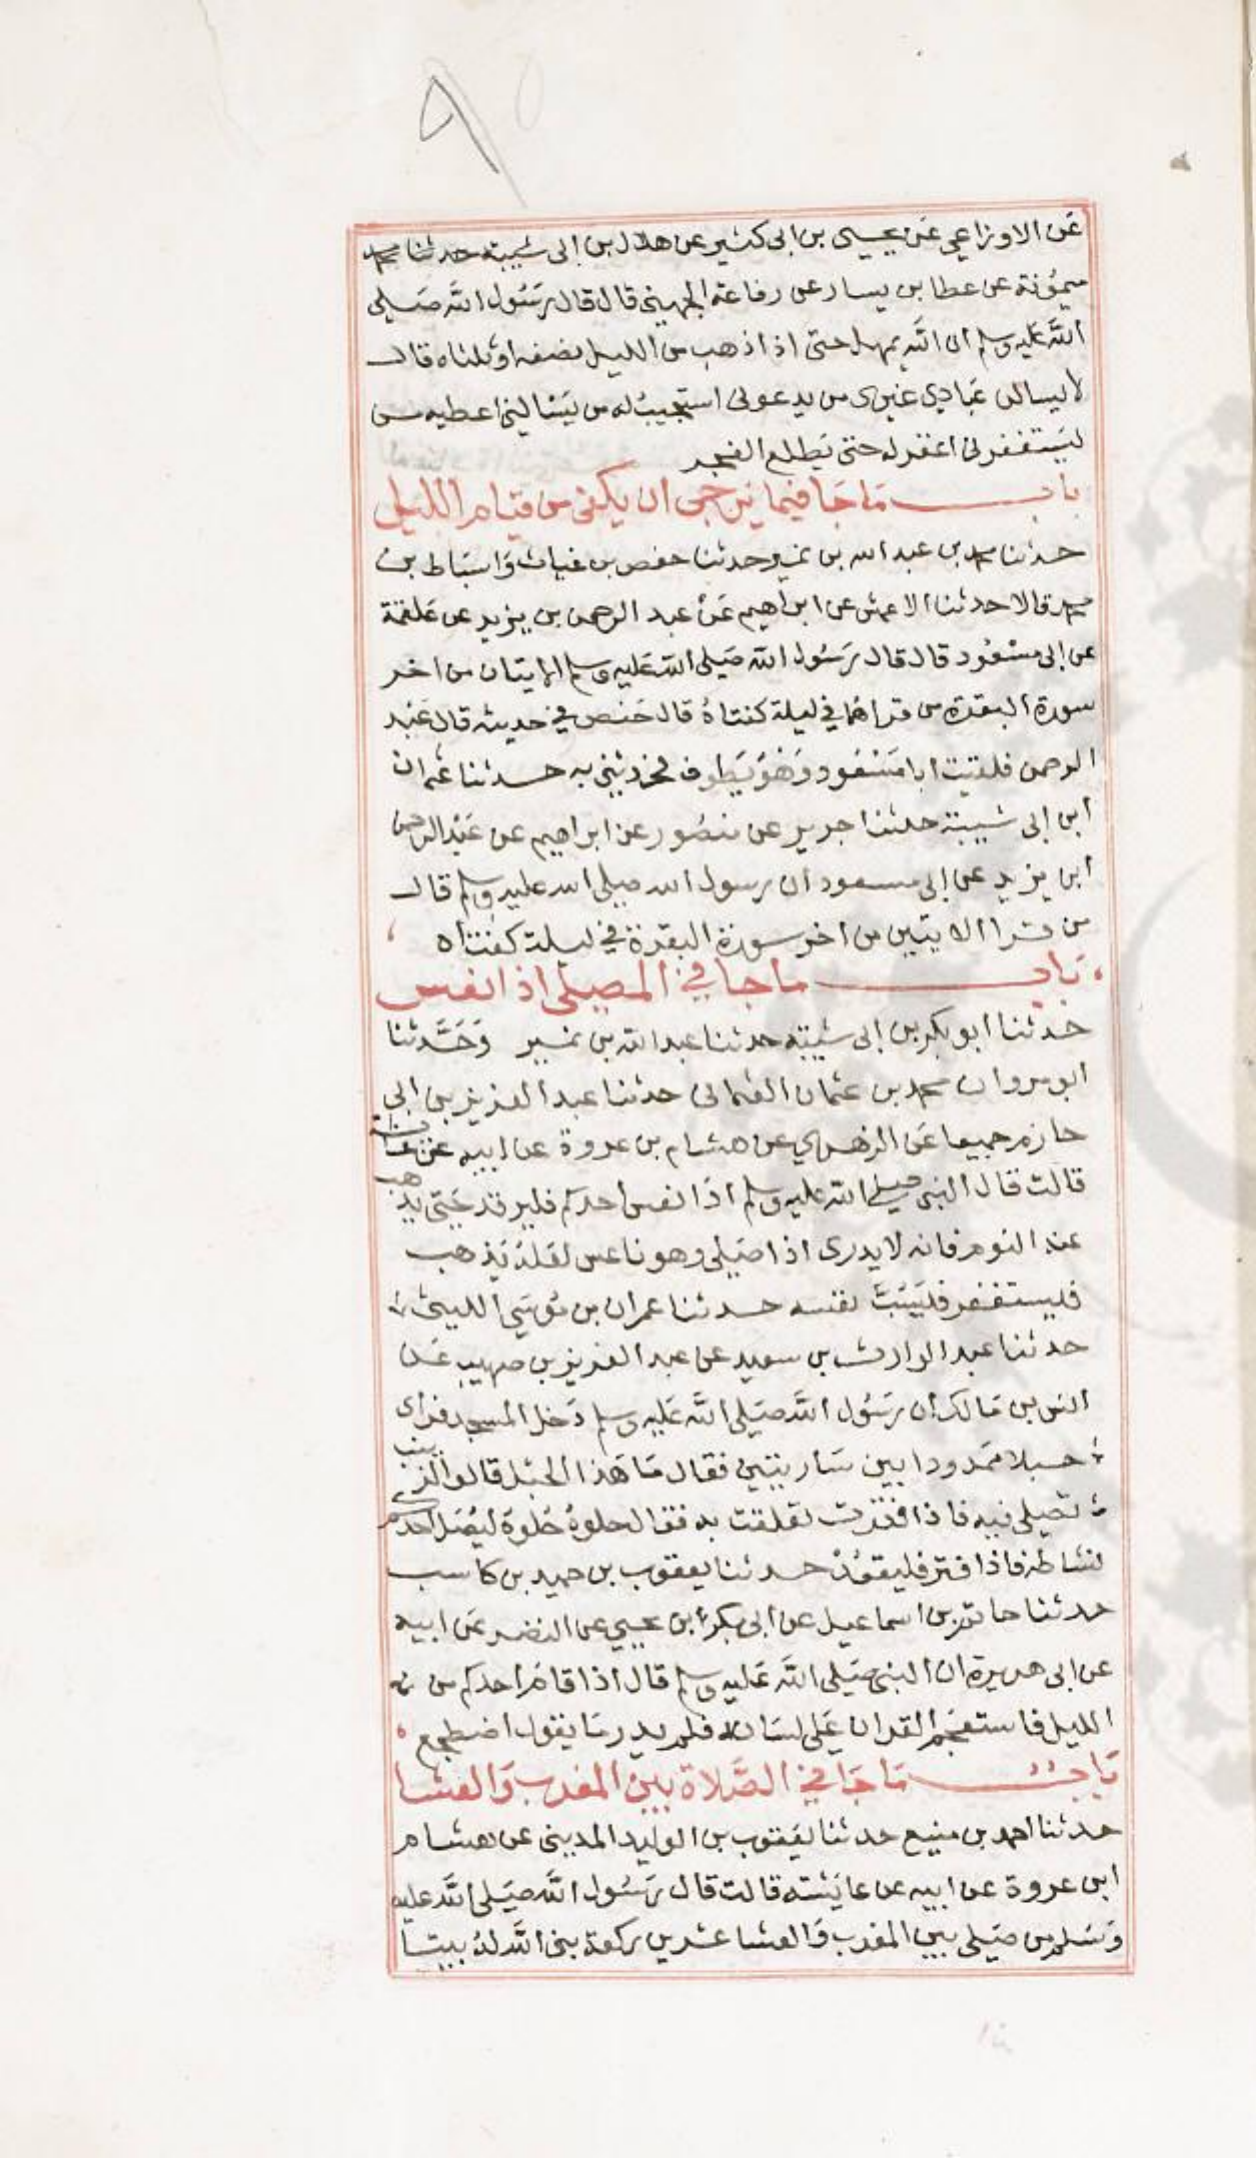 ٩
عن الاوزاعي عن يحيى بن ابى كثير عن هلال بن ابى شيبة حدثنا محمد
ميمونة عن عطا بن يسار عن رفاعة الجهيني قال قال رسول الله صلى
الله عليه وسلم ان الله يمهل حتى اذا ذهب من الليل نصفه او ثلثاه قال
لا يسالن عبادي غيرى من يدعونى استجيب له من يسالني اعطيه من
يستغفرنى اغفر له حتى يطلع الفجر
باب ما جا فيما يرجى ان يكفى من قيام الليل
حدثنا محمد بن عبد الله بن نمير حدثنا حفص بن غياث واسباط بن
محمد قالا حدثنا الاعمش عن ابراهيم عن عبد الرحمن بن يزيد عن علقمة
عن ابى مسعود قال قال رسول الله صلى الله عليه وسلم الايتان من اخر
سورة البقرة من قراهما في ليلة كفتاه قال حفص في حديثه قال عبد
الرحمن فلقيت ابا مسعود وهو يطوف فحدثني به حدثنا عثمان
ابن ابى شيبة حدثنا جرير عن منصور عن ابراهيم عن عبد الرحمن
ابن يزيد عن ابى مسعود ان رسول الله صلى الله عليه وسلم قال
من قرا الايتين من اخر سورة البقرة في ليلة كفتاه
باب ما جا في المصلى اذا نعس
حدثنا ابو بكر بن ابى شيبة حدثنا عبد الله بن نمير وحدثنا
ابو مروان محمد بن عثمان العثمانى حدثنا عبد العزيز بن ابى
حازم جميعا عن الزهري عن هشام بن عروة عن ابيه عن عائشة
قالت قال النبى صلى الله عليه وسلم اذا نعس احدكم فليرقد حتى يذهب
عنه النوم فانه لا يدرى اذا صلى وهو ناعس لعله يذهب
فليستغفر فليسب نفسه حدثنا عمران بن موسى الليثى
حدثنا عبد الوارث بن سعيد عن عبد العزيز بن صهيب عن
انس بن مالك ان رسول الله صلى الله عليه وسلم دخل المسجد فراى
حبلا ممدودا بين ساريتين فقال ما هذا الحبل قالوا لزينب
تصلى فيه فاذا فترت تعلقت به فقال حلوه حلوه ليصل احدكم
نشاطه فاذا فتر فليقعد حدثنا يعقوب بن حميد بن كاسب
حدثنا حاتم بن اسماعيل عن ابى بكر ابن يحيى عن النضر عن ابيه
عن ابى هريرة ان النبى صلى الله عليه وسلم قال اذا قام احدكم من
الليل فاستعجم القران على لسانه فلم يدر ما يقول اضطجع
باب ما جا في الصلاة بين المغرب والعشا
حدثنا احمد بن منيع حدثنا يعقوب بن الوليد المدينى عن هشام
ابن عروة عن ابيه عن عايشه قالت قال رسول الله صلى الله عليه
وسلم من صلى بين المغرب والعشا عشرين ركعة بنى الله له بيتا